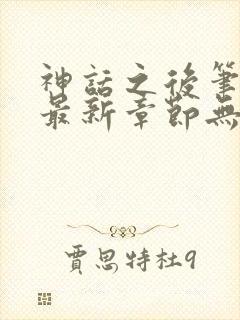 神話之後筆
最新章節無
賈思特杜9